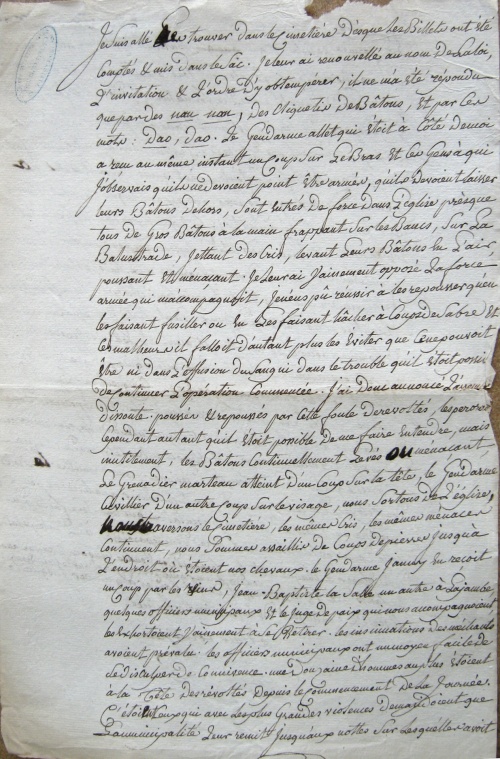 Je suis allé les trouver dans le cimetière Dès que les Billets ont été
Comptés & mis dans le Sac. Je leur ai renouvellé au nom De la loi
L'invitation & L'ordre D'y obtempérer, il ne m'a été répondu
que par des nau nau, Des Cliquetis De Bâtons, et par Ces
mots : Dao, dao. Le Gendarme allet qui étoit à Côté De moi
a reçu au même instant un Coup Sur Le Bras Et Ces Gens à qui
J'observais qu'ils ne devoient point être armés, qu'ils Devoient laisser
leurs Bâtons Dehors, Sont entrés De force Dans L'église presque
tous De Gros Bâtons à la main frappant Sur les Bancs, Sur La
Balustrade, Jettant Des Cris, levant Leurs Bâtons En L'air
poussant Et menaçant. Je leur ai Vainement opposé La force
armée qui m'accompagnoit, Je n'eus pû réussir à les repousser qu'en
les faisant fusiller ou En Les faisant hâcher à Coups De Sabre Et
Ce malheur il falloit D'autant plus les éviter que Ce ne pouvoit
Être ni Dans L'effusion Du Sang ni Dans le trouble qu'il étoit possible
De Continuer L'opération Commencée. J'ai Donc annoncé
Dissoute. poussés & repoussés par Cette foule De revoltés,
Cependant autant qu'il étoit possible De me faire Entendre, mais
inutilement, les Bâtons Continuellement Levés ou menaçant,
Le Grenadier marteau atteint D'un Coup Sur la tête, Le Gendarme
Cuvillier D'un autre Coup Sur le visage, nous Sortons De L'église,
traversons le Cimetière, les mêmes Cris, les mêmes menaces
Continuent, nous Sommes assaillis De Coups De pierres Jusqu'à
L'endroit où étoient nos chevaux. le Gendarme Janny En reçoit
un Coup par les reins, Jean-Baptiste La Salle un autre à La Jambe,
quelques officiers municipaux Et le Juge De paix qui nous accompagnoient
les Exhortoient Vainement à Se Retirer. les insinuations Des méchants
avoient prévalu. les officiers municipaux ont un moyen facile De
Se Disculper De Connivence. une Douzaine D'hommes au plus étoient
à la Tête Des révoltés Depuis le Commencement De La Journée.
C'étoient Ceux qui avec Les plus Grandes violences Demandoient que
La municipalité Leur remit Jusqu'aux nottes Sur Lesquelles avoit